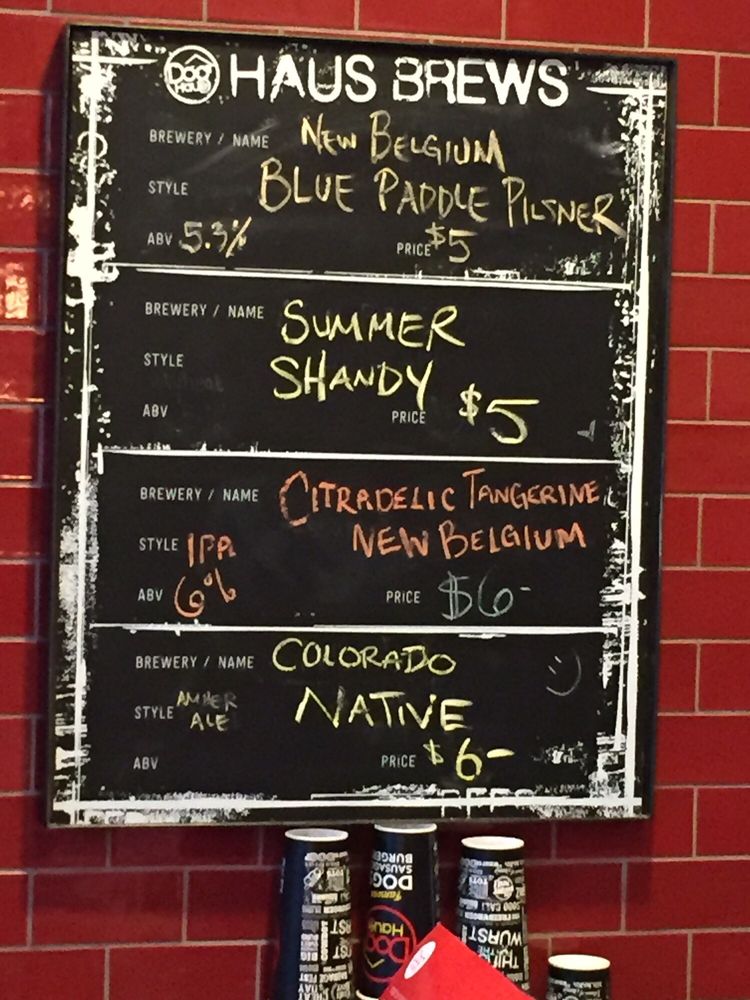 DOG Haus HAUS BREWS
BREWERY / NAME NEW BELGIUM
STYLE BLUE PADDLE PILSNER
ABV 5.3% PRICE $5
BREWERY / NAME SUMMER
STYLE SHANDY
ABV PRICE $5
BREWERY / NAME CITRADELIC TANGERINE
STYLE IPA NEW BELGIUM
ABV 6% PRICE $6-
BREWERY / NAME COLORADO :)
STYLE AMBER ALE NATIVE
ABV PRICE $6-
DOG
SAUSAGE
BURGER
DOG
Haus
WURST